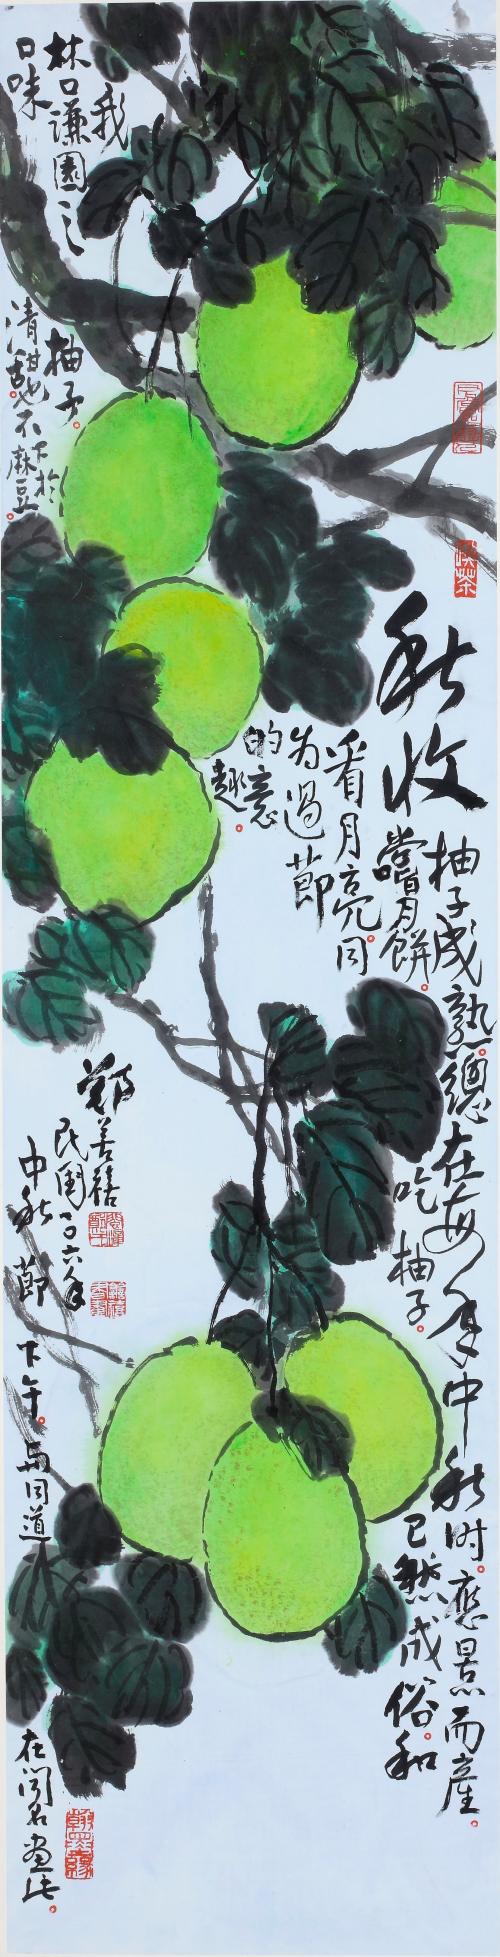 秋收
柚子成熟。總在每年中秋时。應景而產。
嚐月餅。吃柚子。已然成俗。和
看月亮。同
为過節
的意
趣。
我
林口謙園之柚子。
口味清甜也。不下於麻豆。
鄭善禧
民国一〇六年
中秋節下午。与同道
在闻名画此。
喫茶
翰墨緣